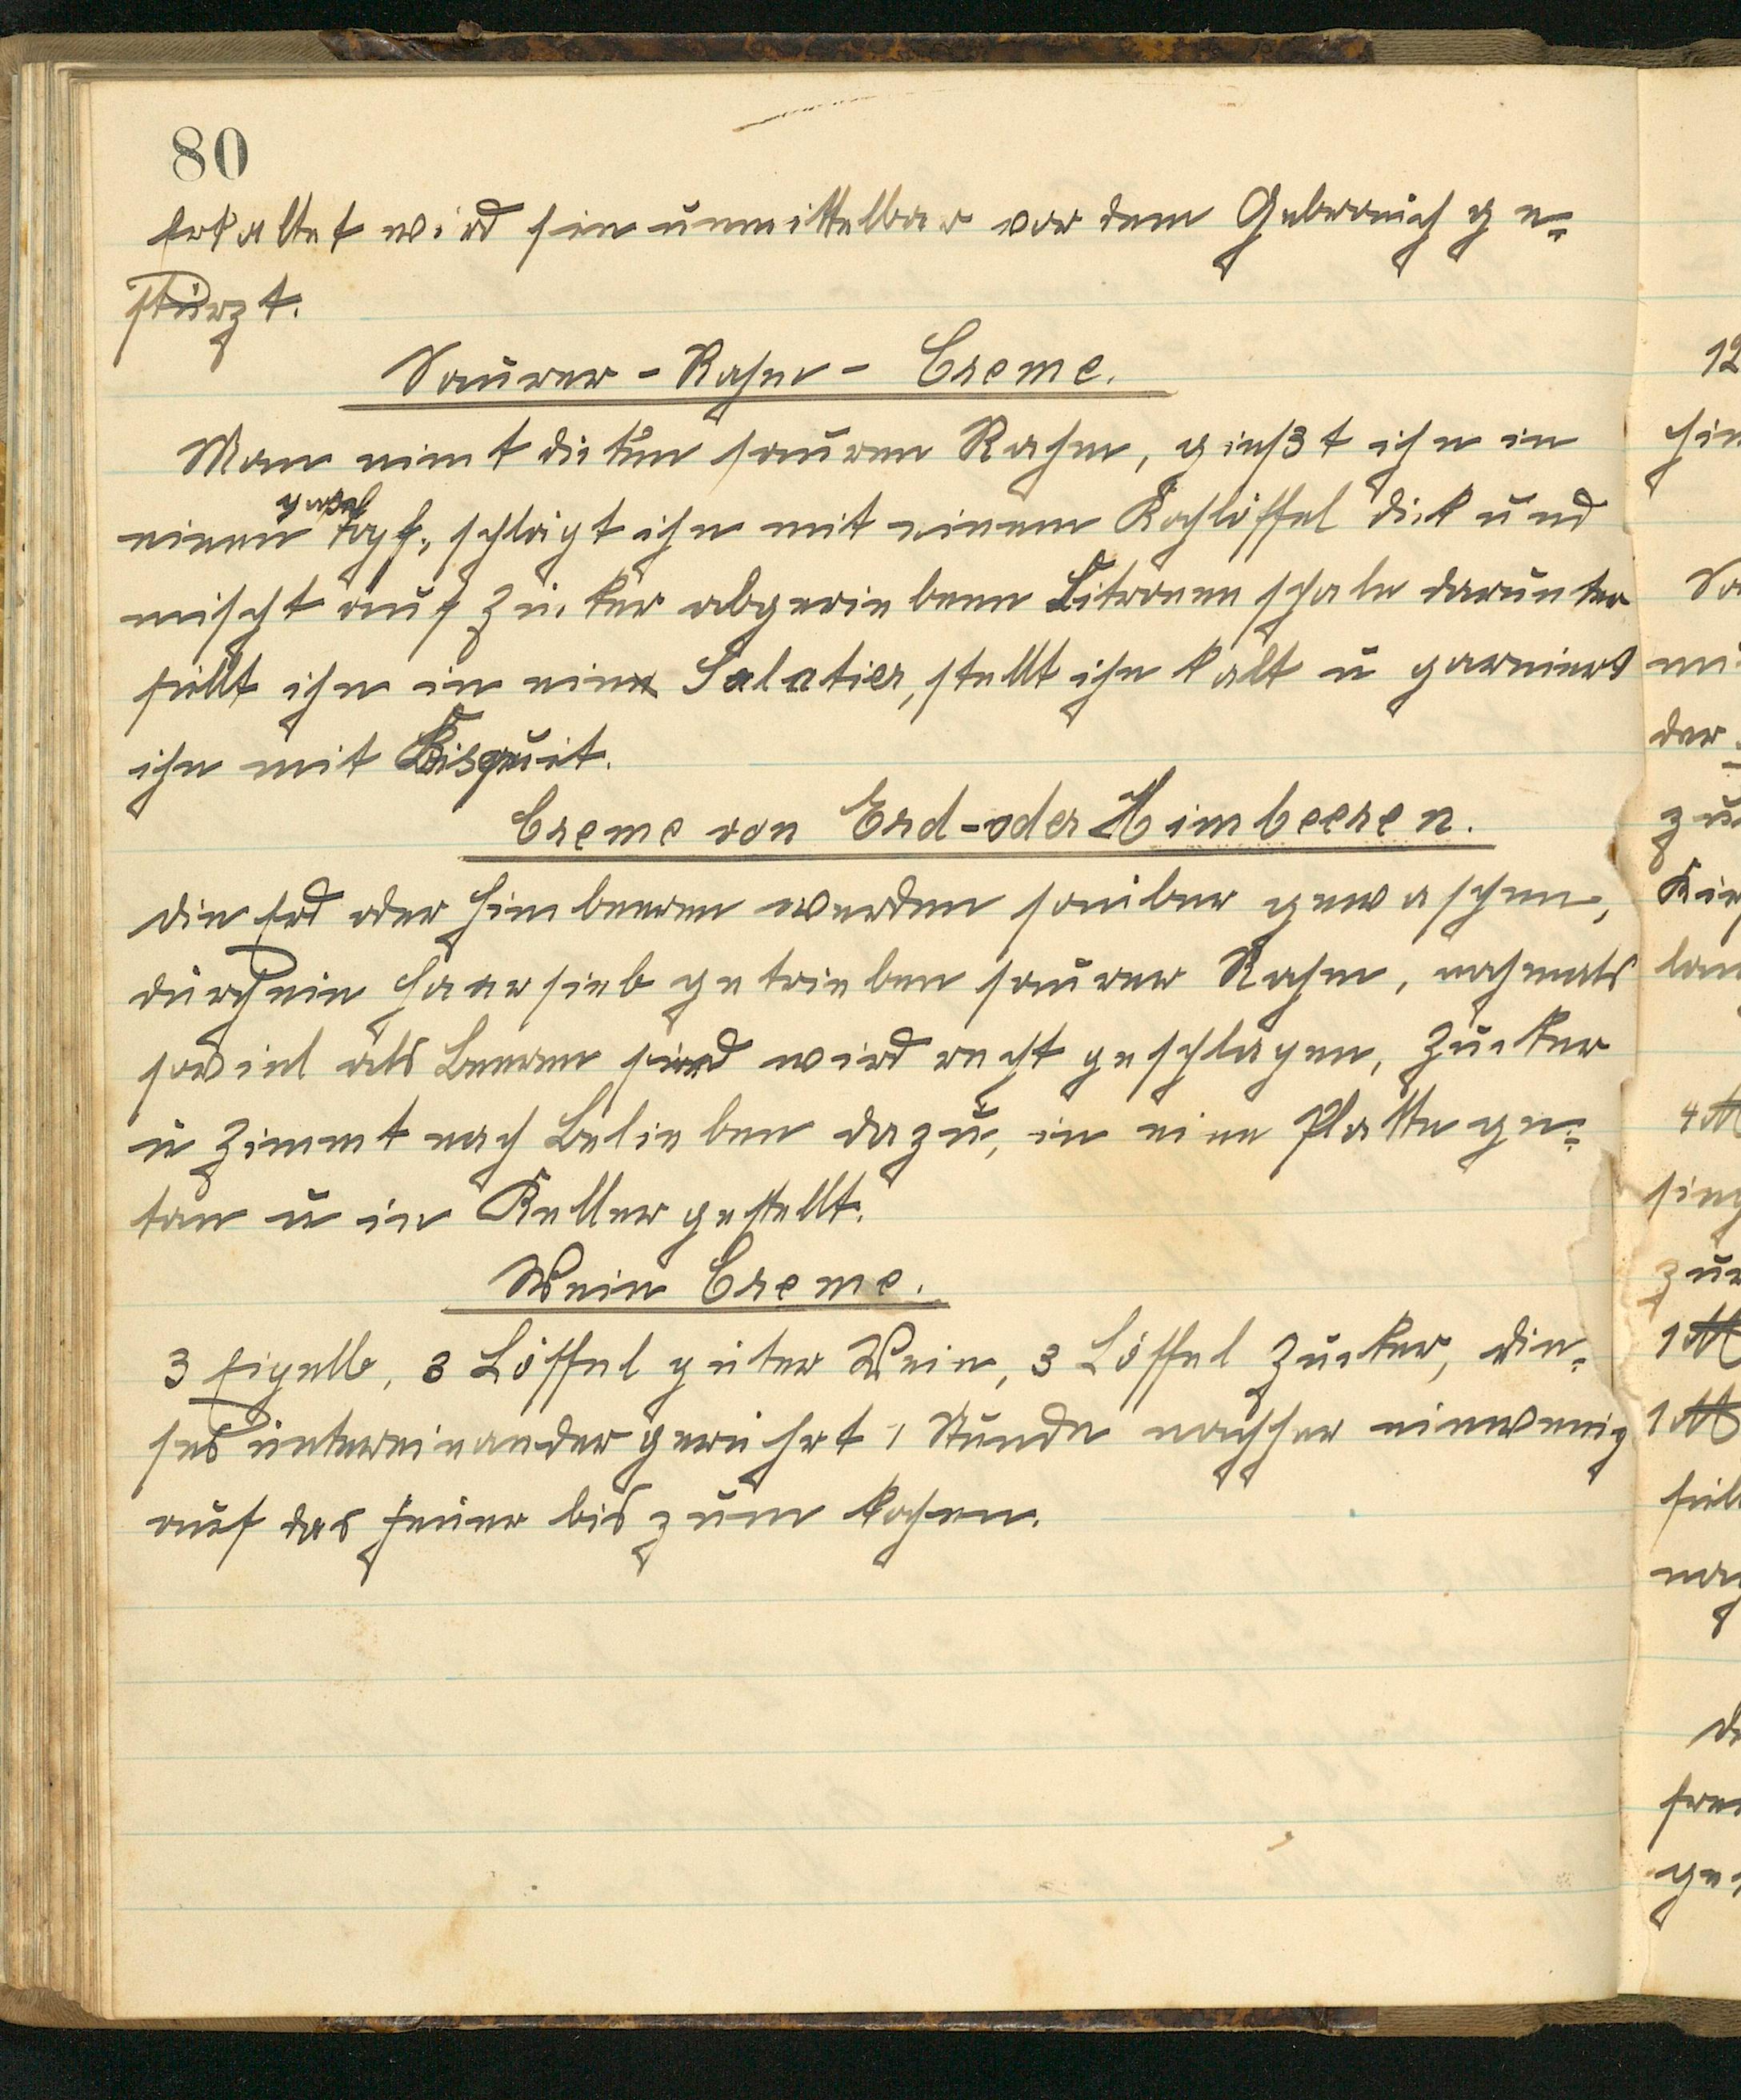 80
Erkaltet wird sie unmittelbar vor dem Gebrauch ge-
stürzt.
Saurer-Rahm-Creme.
Man nimt dicken sauren Rahm, gießt ihn in
einen Topf, schlägt ihn mit einem Kochlöffel dick und
mischt auf Zucker abgeriebene Citronenschale darunter
füllt ihn in eine Salatier, stellt ihn kalt u garniert
ihn mit Bisquit.
Creme von Erd-oder Himbeeren.
Die Erd oder Himbeeren werden sauber gewaschen,
durch ein Haarsieb getrieben saurer Rahm, nochmals
soviel als Beeren sind wird recht geschlagen, Zucker
u Zimmt nach Belieben dazu, in eine Platte ge-
tan u in Keller gestellt.
Wein Creme.
3 Eigelb, 3 Löffel guter Wein, 3 Löffel Zucker, die-
ses untereinander gerührt 1 Stunde nachher ein wenig
auf das Feuer bis zum kochen.
12
4 ℔
1 ℔
1 ℔